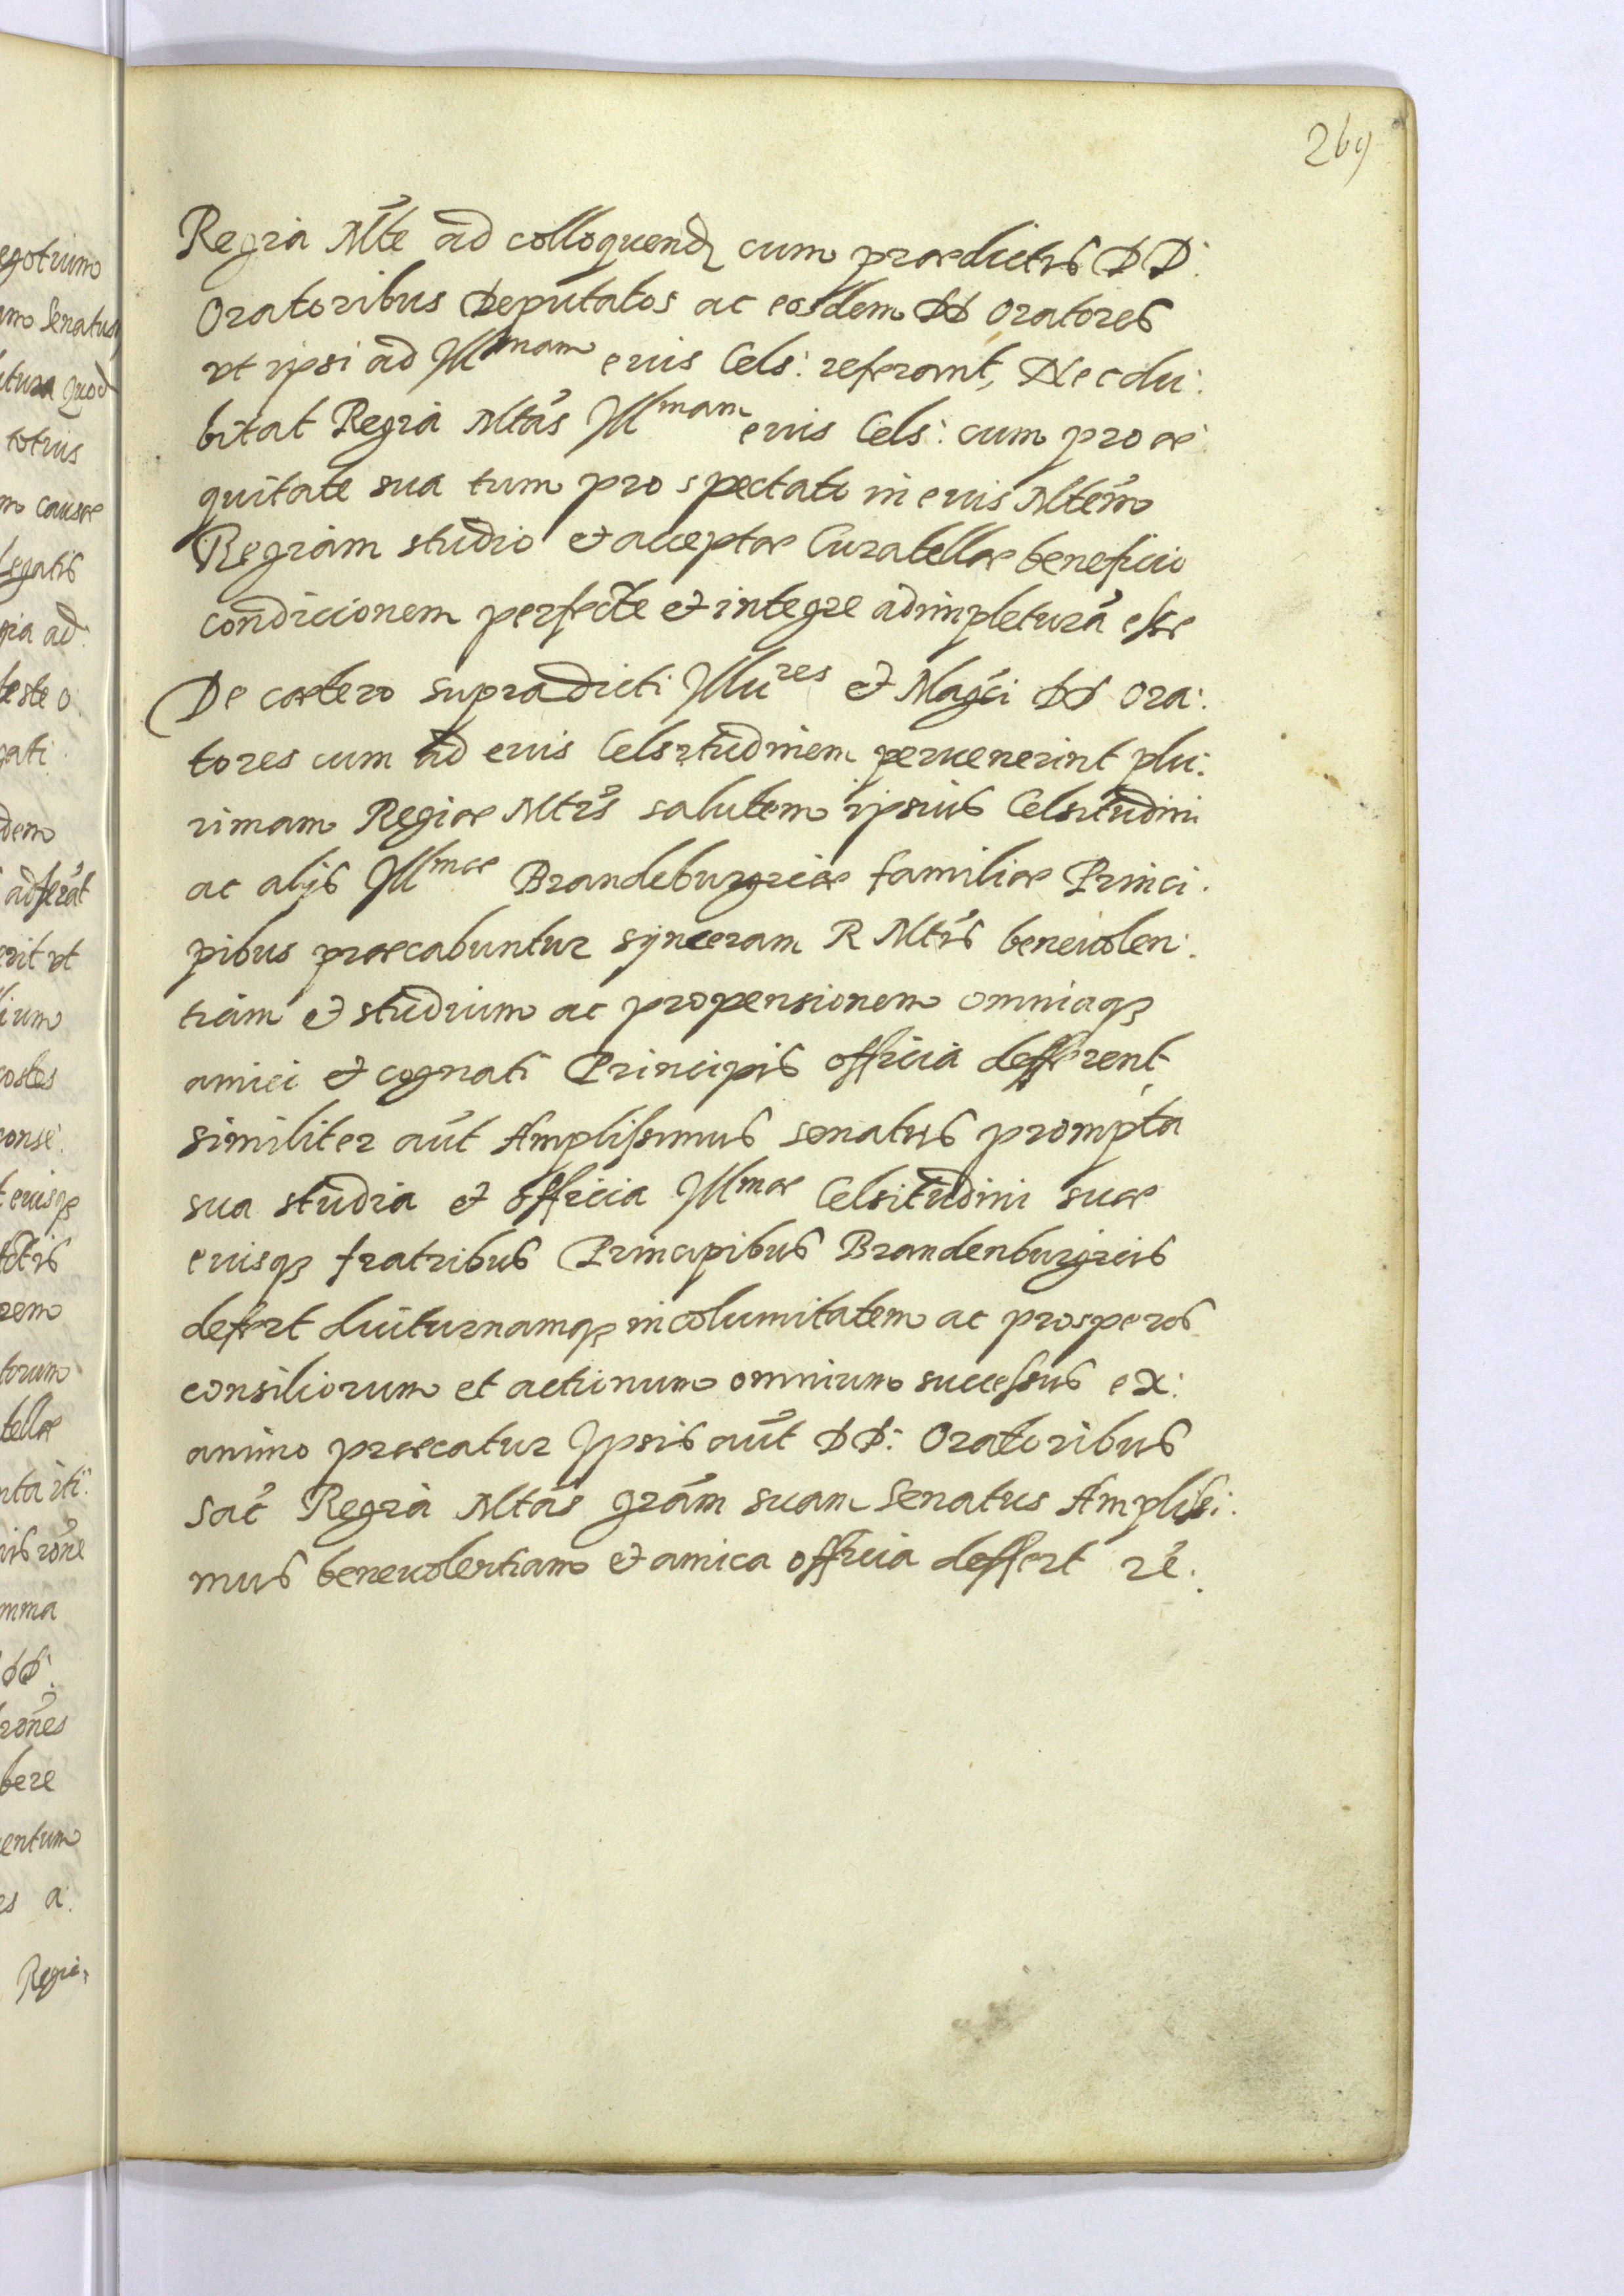 269
Regia Mte ad colloquend cum praedictis DD:
Oratoribus Deputatos ac eosdem DD Oratores
vt ipsi ad Illmam euis Cels: referant, Nec du:
bitat Regia Mtas Illmam euis Cels: cum pro ae:
quitate sua tum pro spectato in euis Mtem
Regiam studio et acceptae Curatellae beneficio
condicionem perfecte et integre adimpleturã esse
De caetero supradicti Illures et Magci DD Ora:
tores cum ad euis Celsitudinem peruenerint plu:
rimam Regiae Mtis salutem ipsius Celsitudini
ac alijs Illmae Brandeburgicae familiae Princi:
pibus praecabuntur synceram R Mtis beneuolen:
tiam et studium ac propensionem omniaqz
amici et cognati Principis officia defferent
similiter aut Amplissimus senatus prompta
sua studia et officia Illmae Celsitudini suae
euisqz fratribus Principibus Brandenburgicis
defert diuturnamqz incolumitatem ac prosperos
consiliorum et actionum omnium successus ex:
animo praecatur Ipsis aut DD: Oratoribus
Sac Regia Mtas gram suam Senatus Amplissi:
mus beneuolentiam et amica officia deffert re.
egotium
senatus
itura Quod
totius
m causae
Legatis
gia ad:
gati
dem
adferat
erit vt
costes
conse:
euisqz
torum
tellae
rone
mma
DD.
rones
bere
entum
es a:
Regia